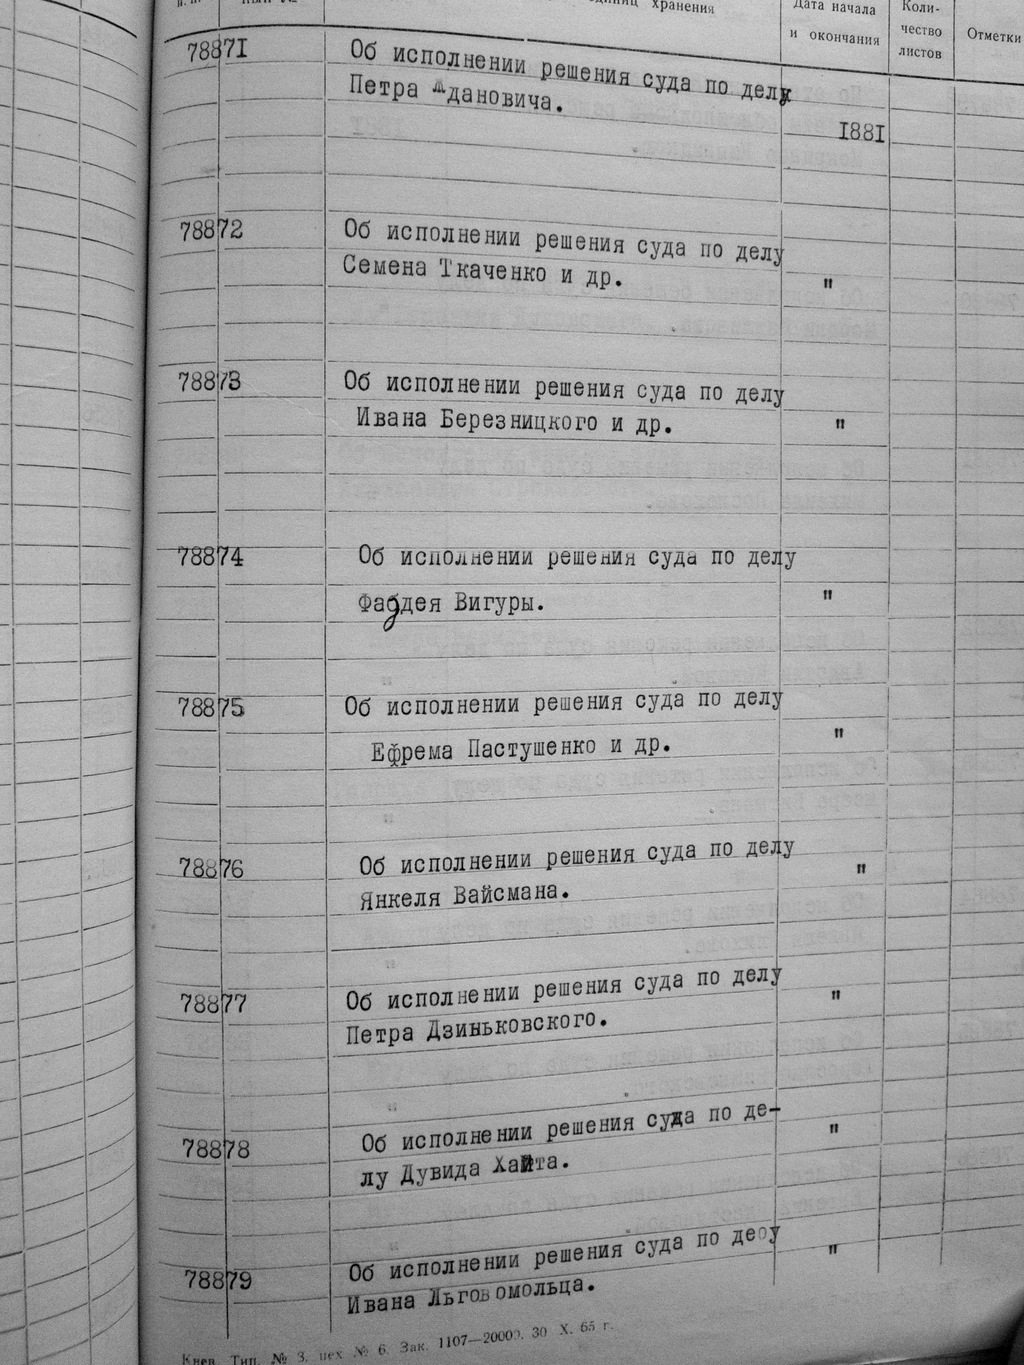 единиц хранения
Дата начала и окончания
Коли- чество листов
Отметки
78871 Об исполнении решения суда по делу
Петра Адановича.
1881
78872 Об исполнении решения суда по делу
Семена Ткаченко и др. "
78873 Об исполнении решения суда по делу
Ивана Березницкого и др. "
78874 Об исполнении решения суда по делу
Фаддея Вигуры. "
78875 Об исполнении решения суда по делу
Ефрема Пастушенко и др. "
78876 Об исполнении решения суда по делу
Янкеля Вайсмана. "
78877 Об исполнении решения суда по делу
Петра Дзиньковского. "
78878 Об исполнении решения суда по де-
лу Дувида "
78879 Об исполнении решения суда по деоу
Ивана Льговомольца. "
Киев. Тип. № 3. цех № 6. Зак. 1107—20000. 30 X. 65 г.